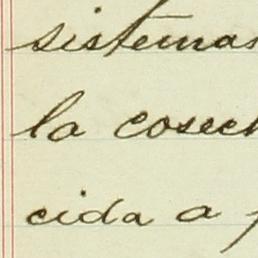 sistemas
la cosech
cida a